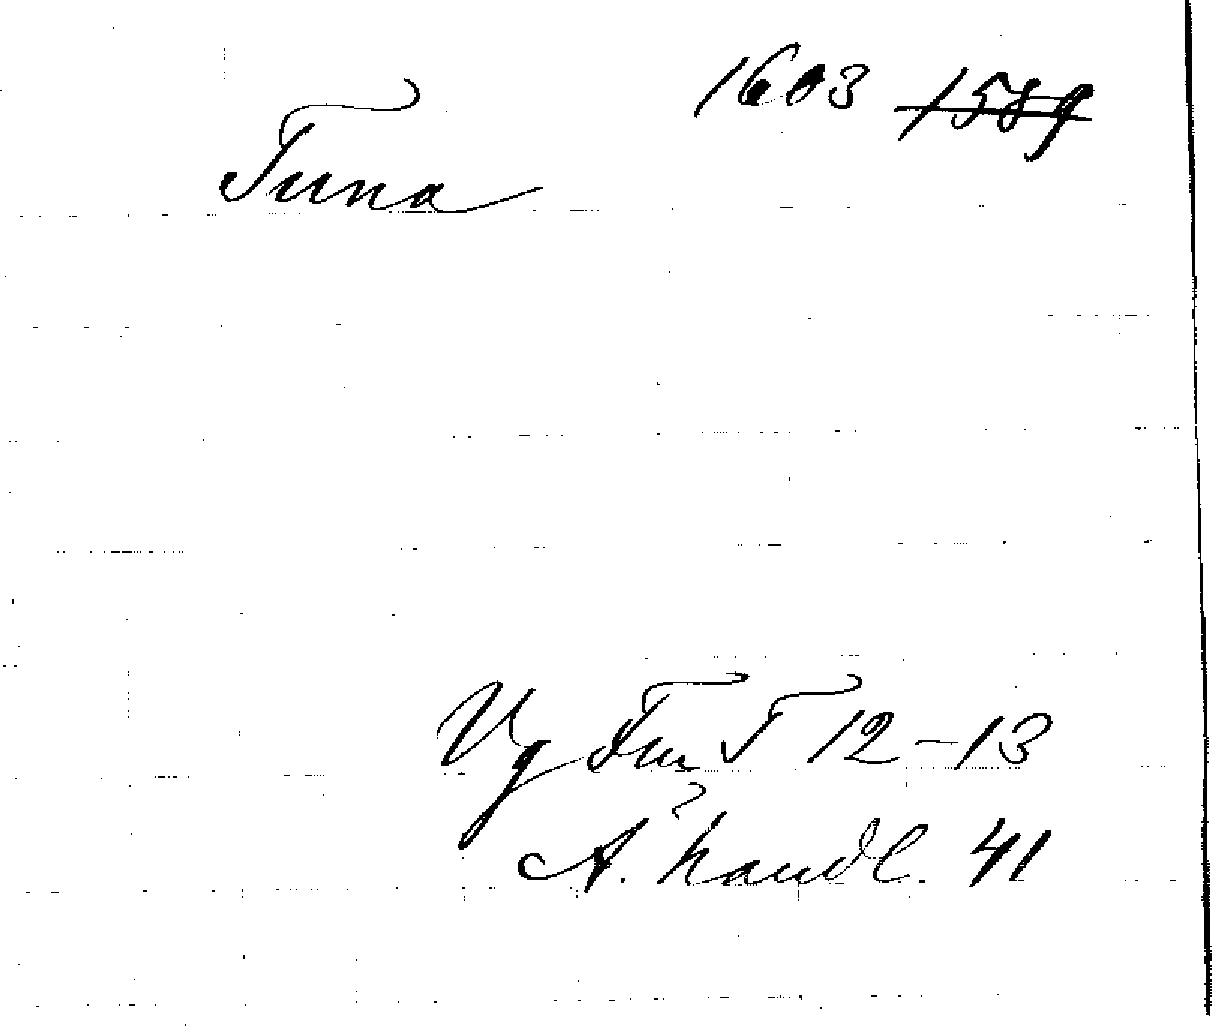 1603 ~~1589~~
Tuna
Vg Tun T 12-13
A. handl. 41